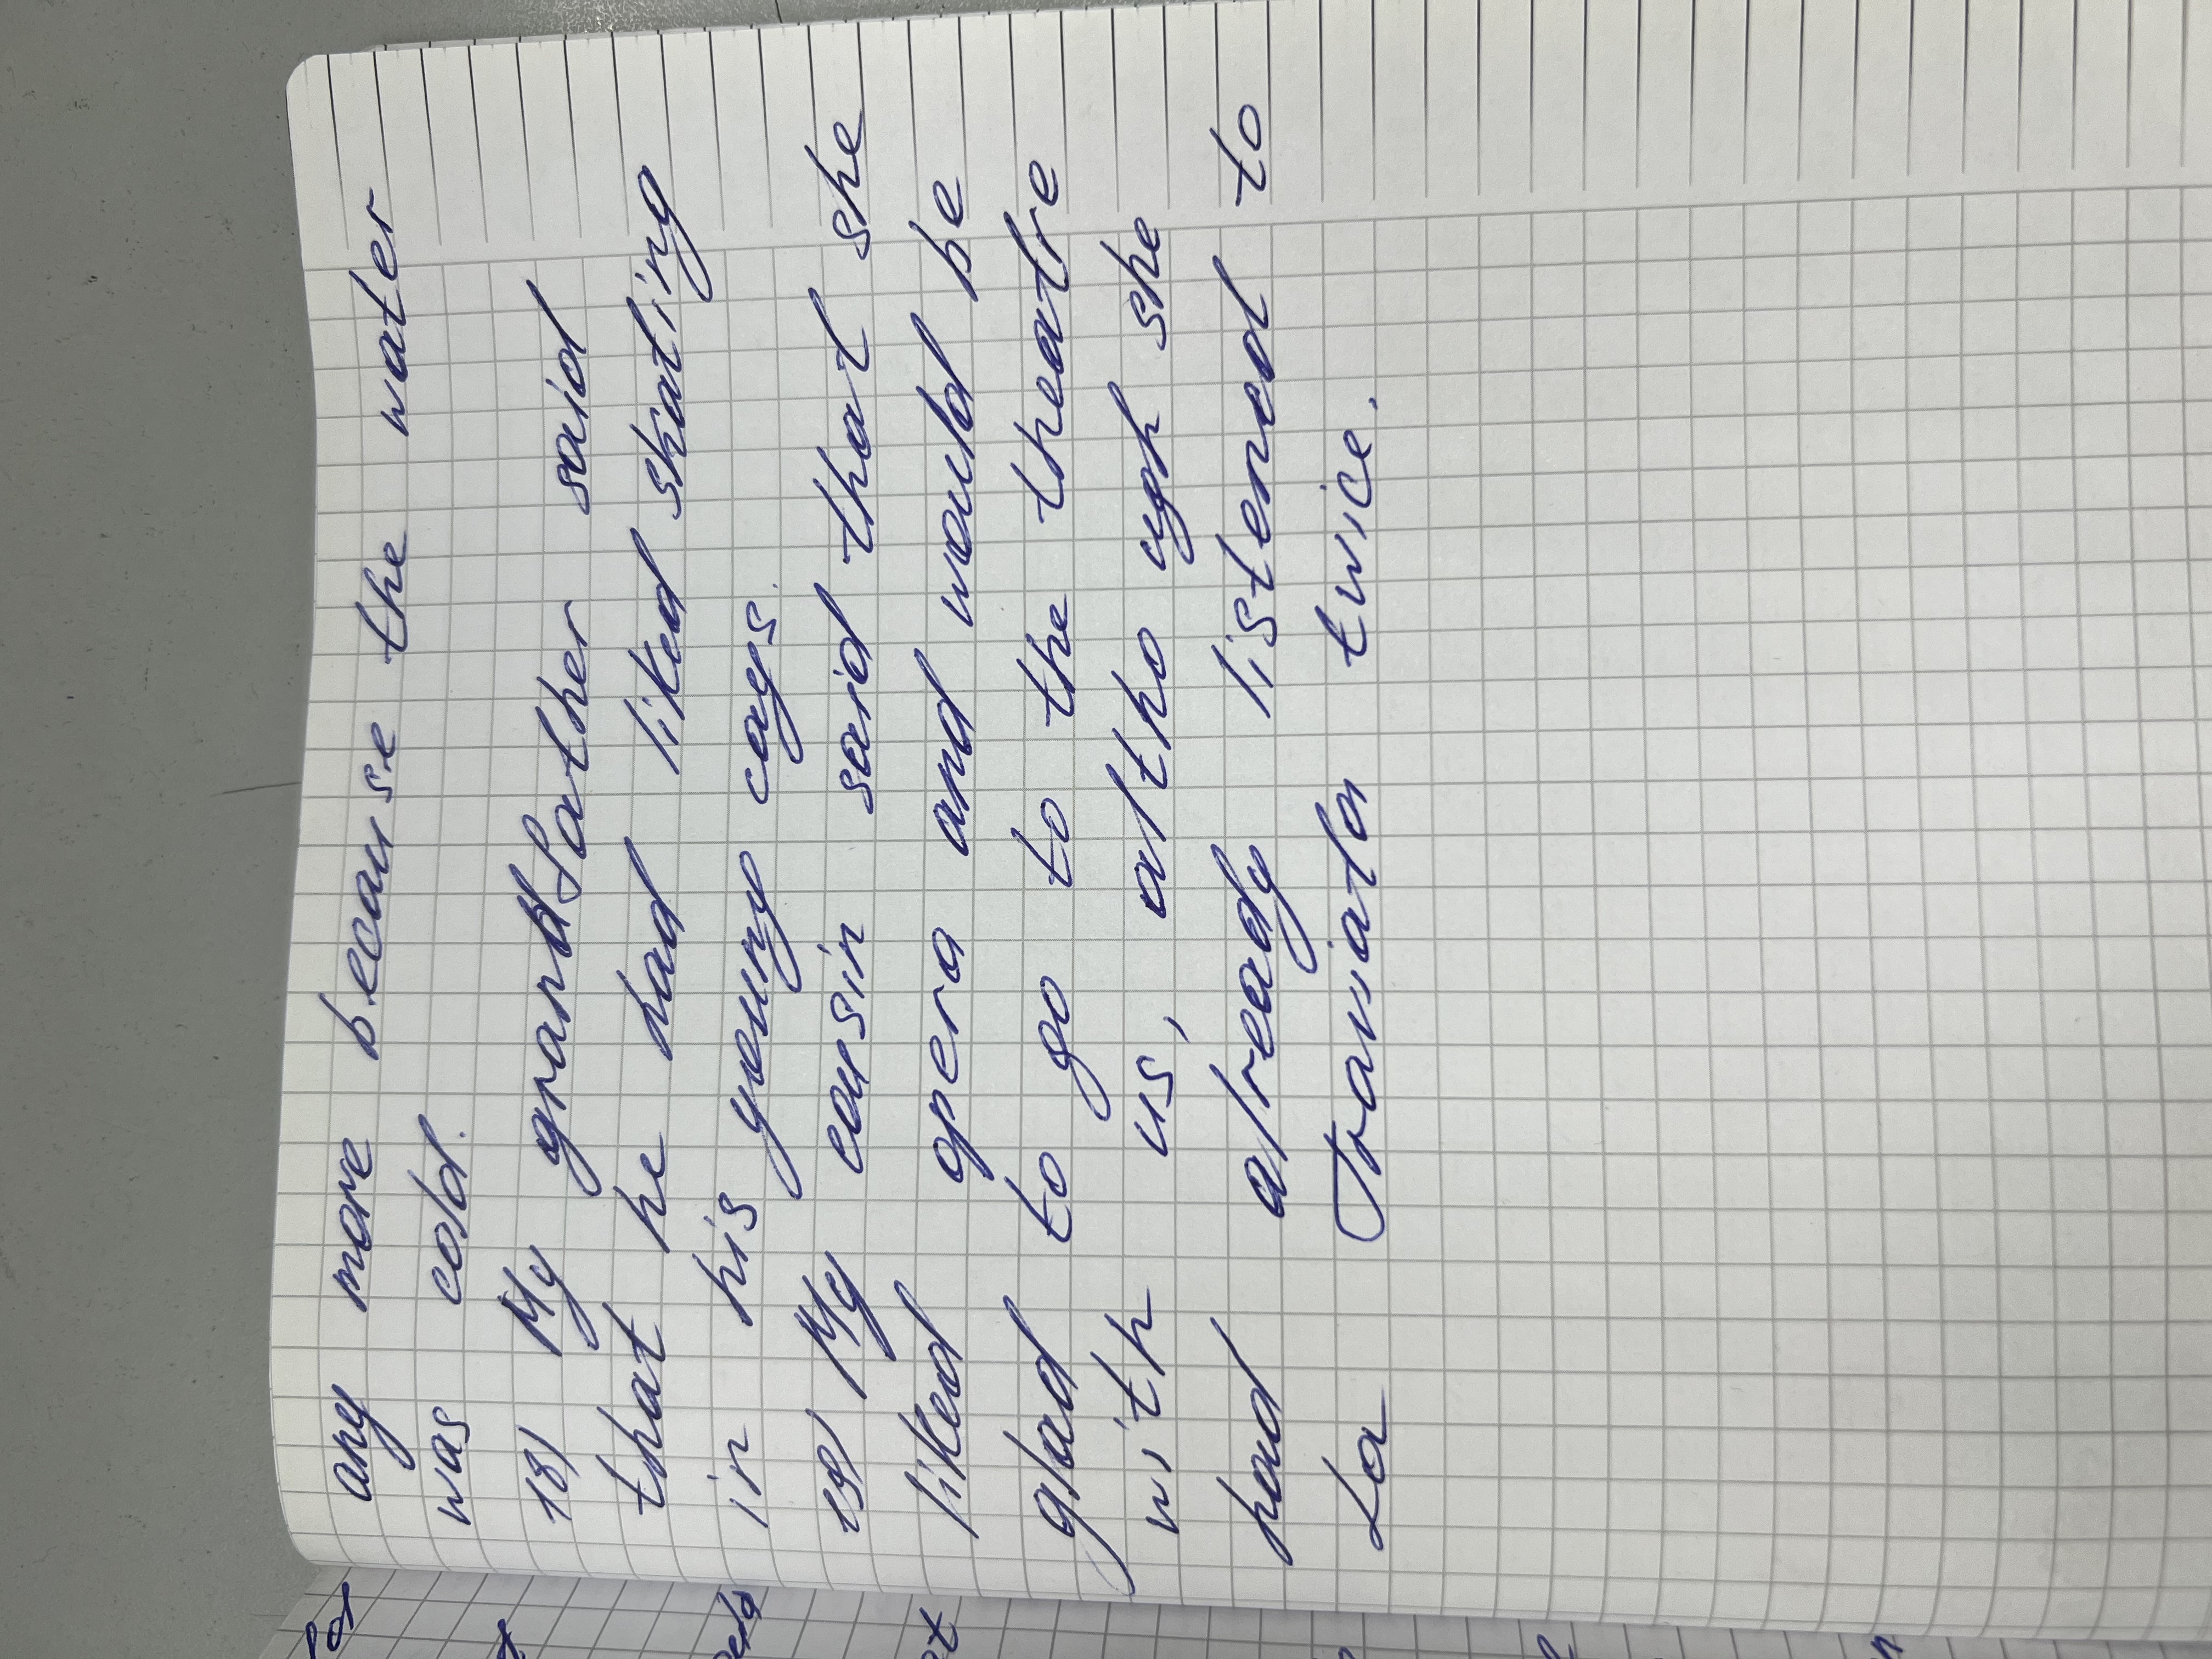 any more because the water
was cold.
18) My grandfather said
that he had liked skating
in his young cays.
19) My cousin said that she
liked opera and would be
glad to go to the theatre
with us, altho ugh she
had already listened to
La Traviata twice.